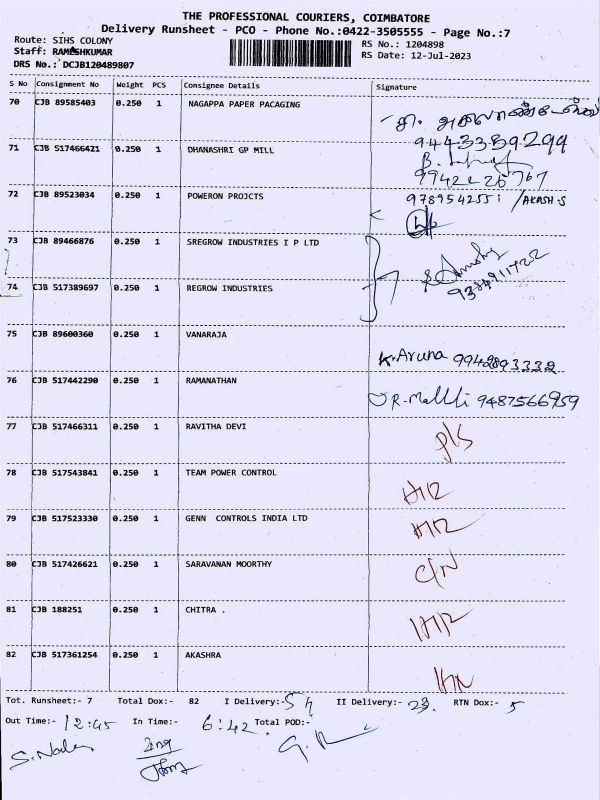 THE PROFESSIONAL COURIERS, COIMBATORE
Delivery Runsheet - PCO - Phone No.:0422-3505555 - Page No.:7
Route: SIHS COLONY
RS No.: 1204898
Staff: RAMESHKUMAR
RS Date: 12-Jul-2023
DRS No.: DCJB120489807
S No Consignment No Weight PCS Consignee Details Signature
70 CJB 89585403 0.250 1 NAGAPPA PAPER PACAGING
9443359299
71 CJB 517466421 0.250 1 DHANASHRI GP MILL
72 CJB 89523034 0.250 1 POWERON PROJCTS 9789542551 /AKASH.S
73 CJB 89466876 0.250 1 SREGROW INDUSTRIES I P LTD
74 CJB 517389697 0.250 1 REGROW INDUSTRIES
75 CJB 89600360 0.250 1 VANARAJA
K.Aruna 9942893332
76 CJB 517442290 0.250 1 RAMANATHAN
9487566959
77 CJB 517466311 0.250 1 RAVITHA DEVI
78 CJB 517543841 0.250 1 TEAM POWER CONTROL
79 CJB 517523330 0.250 1 GENN CONTROLS INDIA LTD
80 CJB 517426621 0.250 1 SARAVANAN MOORTHY
81 CJB 188251 0.250 1 CHITRA .
82 CJB 517361254 0.250 1 AKASHRA
Tot. Runsheet:- 7 Total Dox:- 82 I Delivery:- 54 II Delivery:- 23. RTN Dox:- 5
Out Time:- 12:45 In Time:- 6:42. Total POD:-